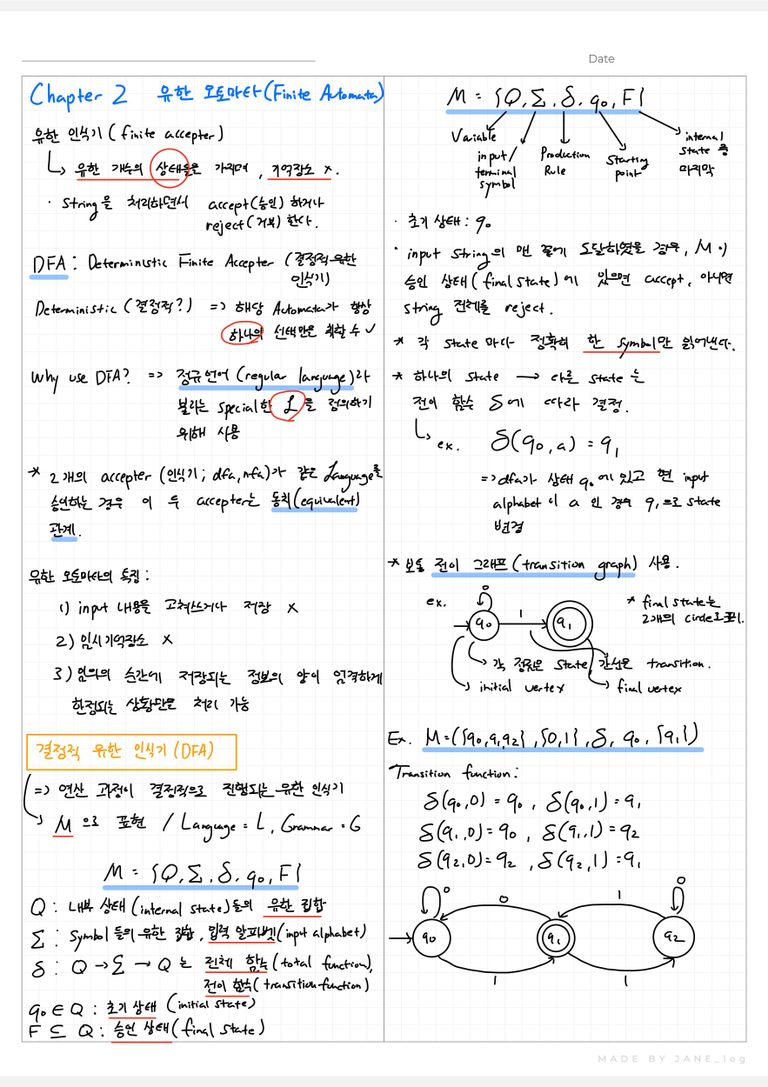 Date
Chapter 2 유한 오토마타(Finite Automata)
유한 인식기 (finite accepter)
유한 개수의 상태들을 가지며, 기억장소 x.
· String을 처리하면서 accept(승인) 하거나
reject(거부) 한다.
DFA : Deterministic Finite Accepter (결정적 유한
인식기)
Deterministic (결정적?) => 해당 Automata가 항상
하나의 선택만을 취할 수 ✓
Why use DFA? => 정규언어 (regular language)라
불리는 special한 L를 정의하기
위해 사용
* 2개의 accepter (인식기; dfa, nfa)가 같은 Language를
승인하는 경우 이 두 accepter는 동치(equivalent)
관계.
유한 오토마타의 특징 :
1) input 내용을 고쳐쓰거나 저장 X
2) 임시기억장소 X
3) 임의의 순간에 저장되는 정보의 양이 엄격하게
한정되는 상황만을 처리 가능
결정적 유한 인식기 (DFA)
=> 연산 과정이 결정적으로 진행되는 유한 인식기
M 으로 표현 / Language = L, Grammar = G
M = {Q, Σ, δ, q0, F}
Q : 내부 상태 (internal state)들의 유한 집합
Σ : Symbol 들의 유한 집합, 입력 알파벳 (input alphabet)
δ : Q → Σ → Q 는 전체 함수 (total function),
전이 함수 (transition function)
q0 ∈ Q : 초기 상태 (initial state)
F ⊆ Q : 승인 상태 (final state)
M = {Q, Σ, δ, q0, F}
Variable
input/
terminal
symbol
Production
Rule
Starting
point
internal
state 중
마지막
· 초기 상태 : q0
· input string의 맨 끝에 도달하였을 경우, M이
승인 상태 (final state)에 있으면 accept, 아니면
string 전체를 reject.
* 각 state 마다 정확히 한 symbol만 읽어낸다.
* 하나의 state → 다른 state 는
전이 함수 δ에 따라 결정.
ex. δ(q0, a) = q1
=> dfa가 상태 q0에 있고 현 input
alphabet 이 a 인 경우 q1으로 state
변경
* 보통 전이 그래프 (transition graph) 사용.
ex.
0
q0
1
q1
* final state는
2개의 circle로 표시.
각 정점은 state, 간선은 transition.
initial vertex
final vertex
Ex. M = ({q0, q1, q2}, {0, 1}, δ, q0, {q1})
Transition function :
δ(q0, 0) = q0, δ(q0, 1) = q1
δ(q1, 0) = q0, δ(q1, 1) = q2
δ(q2, 0) = q2, δ(q2, 1) = q1
0
0
1
0
q0
q1
q2
1
1
MADE BY JANE_log